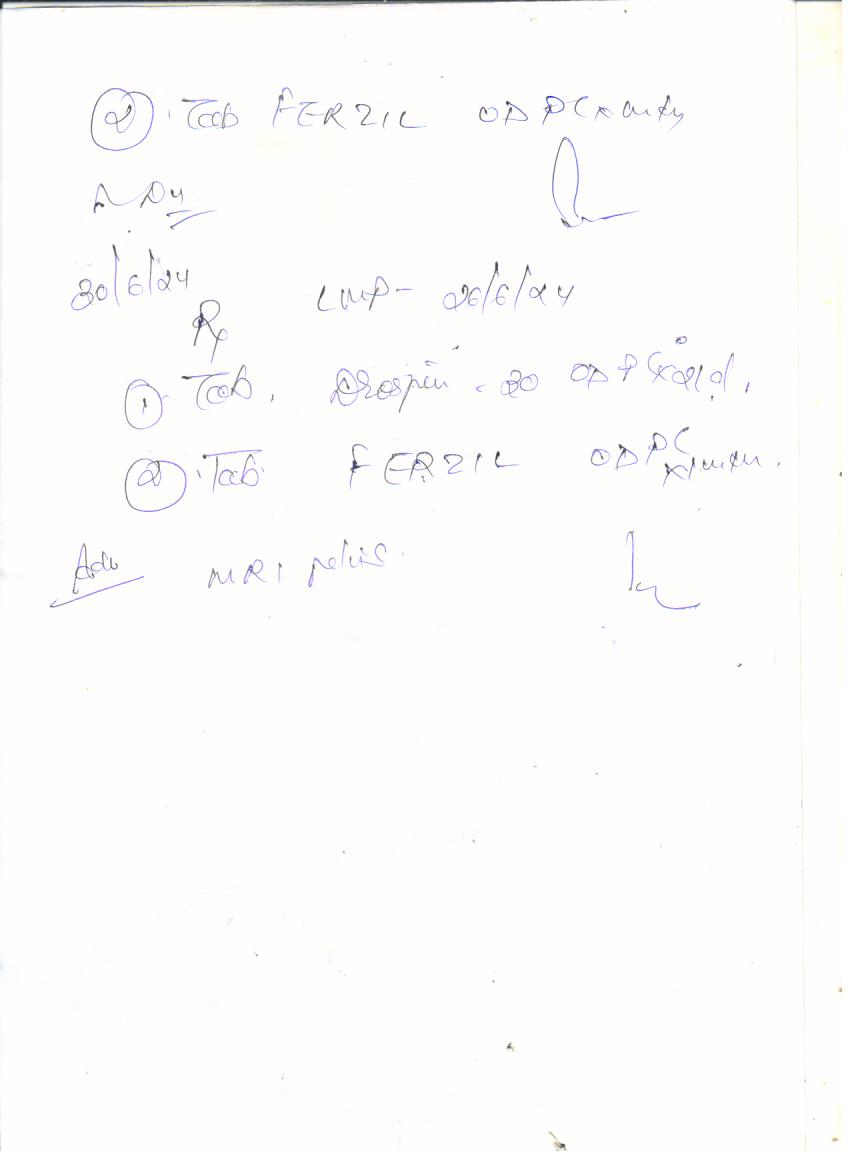 ② Tab FERZIL OD PC x
D4
30/6/24 LMP- 26/6/24
Rx
① Tab. Drospin - 20 OD PC x 21 d.
② Tab FERZIL OD PC
Adv MRI pelvis